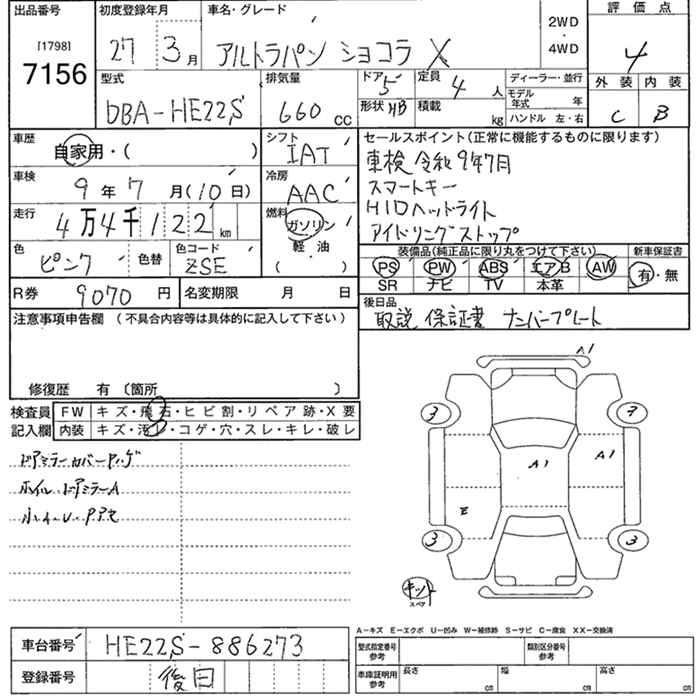 出品番号
[1798]
7156
初度登録年月
27 3月
車名・グレード
アルトラパン ショコラ X
2WD
・
4WD
評価点
4
型式
DBA-HE22S
排気量
660 cc
ドア 5
形状 HB
定員 4 人
積載 kg
ディーラー・並行
モデル年式 年
ハンドル 左・右
外装 内装
C B
車歴
自家用・( )
シフト
IAT
車検
9年 7月(10日)
冷房
AAC
走行
4万4千122km
燃料
ガソリン
・
軽・油
( )
色
ピンク
色替
色コード
ZSE
R券 9070円
名変期限 月 日
セールスポイント(正常に機能するものに限ります)
車検 令和9年7月
スマートキー
HIDヘッドライト
アイドリングストップ
装備品(純正品に限り丸をつけて下さい)
PS・PW・ABS・エアB・AW
SR ナビ TV 本革
新車保証書
有・無
後日品
取説 保証書 ナンバープレート
注意事項申告欄(不具合内容等は具体的に記入して下さい)
修復歴 有(箇所 )
検査員
記入欄
FW キズ・飛石・ヒビ割・リペア跡・X要
内装 キズ・汚レ・コゲ・穴・スレ・キレ・破レ
ドアミラーカバー
ホイル ドアミラーA
A1
3 7
A1 A1
E
3 3
キット
スペア
A−キズ E−エクボ U−凹み W−補修跡 S−サビ C−腐食 XX−交換済
車台番号 HE22S-886273
登録番号 後日
型式指定番号
参考
類別区分番号
参考
車庫証明用
参考
長さ cm
幅 cm
高さ cm